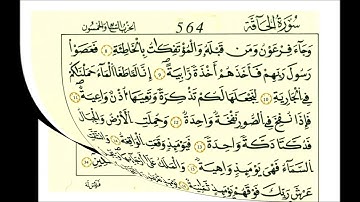 الحزب السابع والخمسون 564 سُورَةُ الحَاقَّة
وَجَآءَ فِرْعَوْنُ وَمَن قَبْلَهُۥ وَالْمُؤْتَفِكَٰتُ بِالْخَاطِئَةِ ٩ فَعَصَوْا۟
رَسُولَ رَبِّهِمْ فَأَخَذَهُمْ أَخْذَةً رَّابِيَةً ١٠ إِنَّا لَمَّا طَغَا الْمَآءُ حَمَلْنَٰكُمْ
فِى الْجَارِيَةِ ١١ لِنَجْعَلَهَا لَكُمْ تَذْكِرَةً وَتَعِيَهَآ أُذُنٌ وَٰعِيَةٌ ١٢
فَإِذَا نُفِخَ فِى الصُّورِ نَفْخَةٌ وَٰحِدَةٌ ١٣ وَحُمِلَتِ الْأَرْضُ وَالْجِبَالُ
فَدُكَّتَا دَكَّةً وَٰحِدَةً ١٤ فَيَوْمَئِذٍ وَقَعَتِ الْوَاقِعَةُ ١٥ وَانشَقَّتِ
السَّمَآءُ فَهِىَ يَوْمَئِذٍ وَاهِيَةٌ ١٦ وَالْمَلَكُ عَلَىٰٓ أَرْجَآئِهَا وَيَحْمِلُ
عَرْشَ رَبِّكَ فَوْقَهُمْ يَوْمَئِذٍ ثَمَٰنِيَةٌ